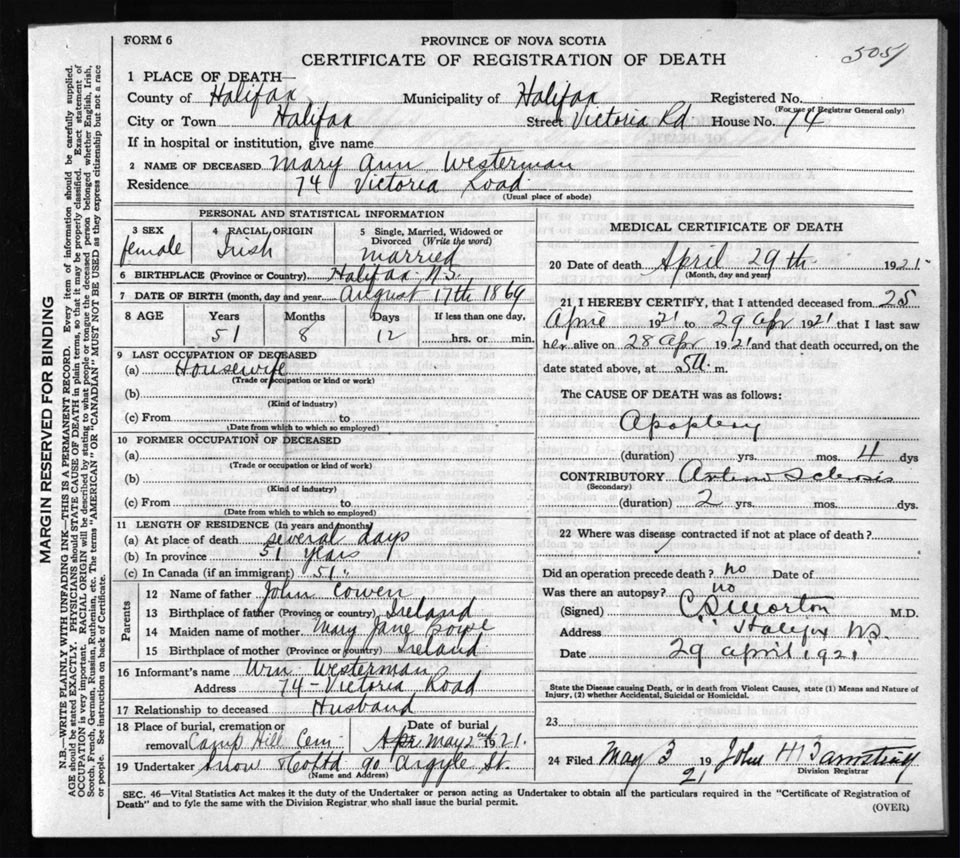 FORM 6
PROVINCE OF NOVA SCOTIA
5051
CERTIFICATE OF REGISTRATION OF DEATH
1 PLACE OF DEATH—
County of Halifax Municipality of Halifax Registered No.
(For use of Registrar General only)
City or Town Halifax Street Victoria Rd House No. 74
If in hospital or institution, give name
2 NAME OF DECEASED Mary Ann Westerman
Residence 74 Victoria Road
(Usual place of abode)
PERSONAL AND STATISTICAL INFORMATION
3 SEX 4 RACIAL ORIGIN 5 Single, Married, Widowed or
Divorced (Write the word)
female Irish married
6 BIRTHPLACE (Province or Country) Halifax N.S.
7 DATE OF BIRTH (month, day and year) August 17th 1869
8 AGE Years Months Days If less than one day,
51 8 12 hrs. or min.
9 LAST OCCUPATION OF DECEASED
(a) Housewife
(Trade or occupation or kind or work)
(b)
(Kind of industry)
(c) From to
(Date from which to which so employed)
10 FORMER OCCUPATION OF DECEASED
(a)
(Trade or occupation or kind or work)
(b)
(Kind of industry)
(c) From to
(Date from which to which so employed)
11 LENGTH OF RESIDENCE (In years and months)
(a) At place of death several days
(b) In province 51 years
(c) In Canada (if an immigrant) 51 "
Parents
12 Name of father John Cowen
13 Birthplace of father (Province or country) Ireland
14 Maiden name of mother Mary Jane
15 Birthplace of mother (Province or country) Ireland
16 Informant's name Wm Westerman
Address 74 - Victoria Road
17 Relationship to deceased Husband
18 Place of burial, cremation or Date of burial
removal Camp Hill Cem. Apr May 2nd 1921.
19 Undertaker Snow & Co Ltd 90 Argyle St.
(Name and Address)
MEDICAL CERTIFICATE OF DEATH
20 Date of death April 29th 1921
(Month, day and year)
21 I HEREBY CERTIFY, that I attended deceased from 25
April 1921 to 29 Apr 1921 that I last saw
her alive on 28 Apr 1921 and that death occurred, on the
date stated above, at 5 a. m.
The CAUSE OF DEATH was as follows:
Apoplexy
(duration) yrs. mos. 4 dys
CONTRIBUTORY Arterio Sclerosis
(Secondary)
(duration) 2 yrs. mos. dys.
22 Where was disease contracted if not at place of death?
Did an operation precede death? no Date of
Was there an autopsy? no
(Signed) C S Morton M.D.
Address Halifax N.S.
Date 29 April 1921
State the Disease causing Death, or in death from Violent Causes, state (1) Means and Nature of
Injury, (2) whether Accidental, Suicidal or Homicidal.
23
24 Filed May 3 1921 John H
Division Registrar
SEC. 46—Vital Statistics Act makes it the duty of the Undertaker or person acting as Undertaker to obtain all the particulars required in the "Certificate of Registration of
Death" and to fyle the same with the Division Registrar who shall issue the burial permit.
(OVER)
MARGIN RESERVED FOR BINDING
N.B.—WRITE PLAINLY WITH UNFADING INK—THIS IS A PERMANENT RECORD. Every item of information should be carefully supplied.
AGE should be stated EXACTLY. PHYSICIANS should STATE CAUSE OF DEATH in plain terms, so that it may be properly classified. Exact statement of
OCCUPATION is very important. RACIAL ORIGIN will be described by stating to what people or tongue the deceased person belonged whether English, Irish,
Scotch, French, German, Russian, Ruthenian, etc. The terms "AMERICAN" OR "CANADIAN" MUST NOT BE USED as they express citizenship but not a race
of people. See instructions on back of Certificate.